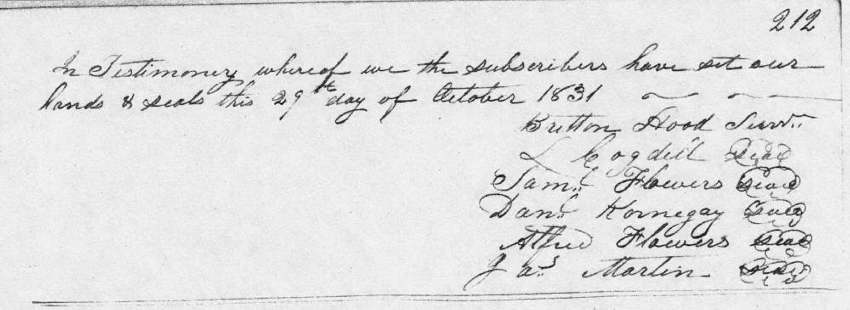 212
In Testimoney whereof we the subscribers have set our
hands & seals this 29th day of October 1831
Britton Hood Survr.
L Cogdell seal
Saml. Flowers seal
Danl. Kornegay seal
Alfred Flowers seal
Jas. Martin seal